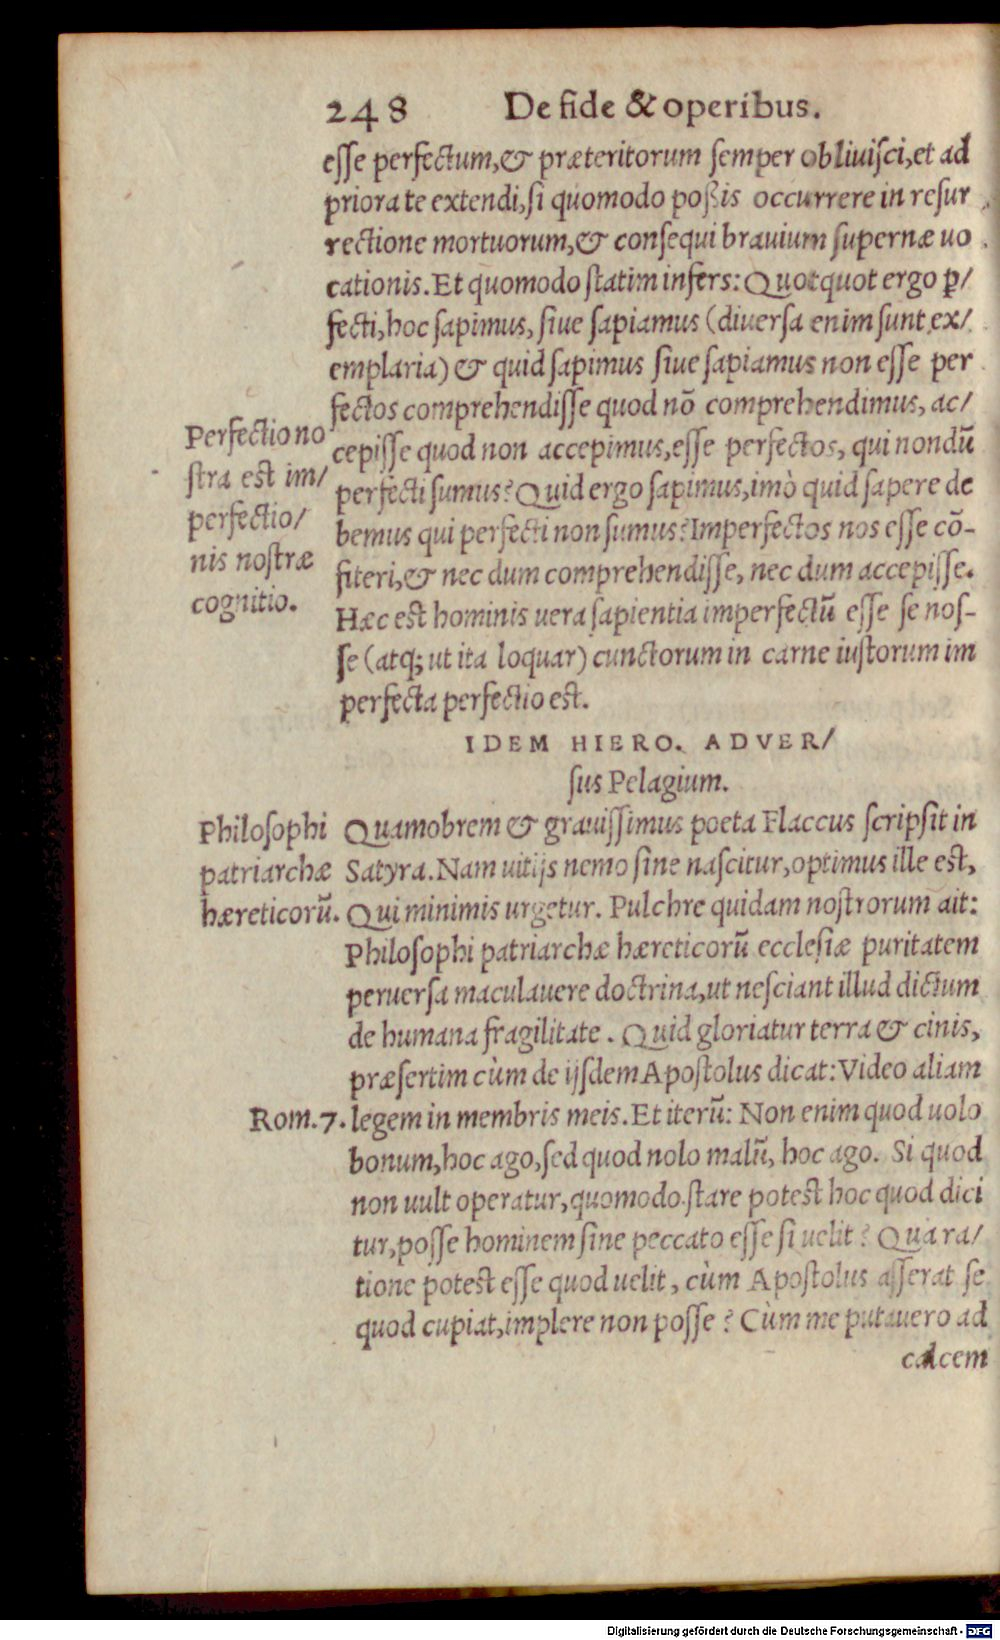 248 De fide & operibus.
esse perfectum,& præteritorum semper obliuisci,et ad
priora te extendi,si quomodo poßis occurrere in resur
rectione mortuorum,& consequi brauium supernæ uo
cationis. Et quomodo statim infers: Quotquot ergo ꝑ/
fecti,hoc sapimus, siue sapiamus (diuersa enim sunt ex/
emplaria) & quid sapimus siue sapiamus non esse per
fectos comprehendisse quod nō comprehendimus, ac/
cepisse quod non accepimus,esse perfectos, qui nondū
perfecti sumus? Quid ergo sapimus,imò quid sapere de
bemus qui perfecti non sumus? Imperfectos nos esse cō-
fiteri,& nec dum comprehendisse, nec dum accepisse.
Hæc est hominis uera sapientia imperfectū esse se nos-
se (atq; ut ita loquar) cunctorum in carne iustorum im
perfecta perfectio est.
Perfectio no
stra est im/
perfectio/
nis nostræ
cognitio.
IDEM HIERO. ADVER/
sus Pelagium.
Quamobrem & grauissimus poeta Flaccus scripsit in
Satyra. Nam uitijs nemo sine nascitur,optimus ille est,
Qui minimis urgetur. Pulchre quidam nostrorum ait:
Philosophi patriarchæ hæreticorū ecclesiæ puritatem
peruersa maculauere doctrina,ut nesciant illud dictum
de humana fragilitate. Quid gloriatur terra & cinis,
præsertim cùm de ijsdem Apostolus dicat: Video aliam
legem in membris meis. Et iterū: Non enim quod uolo
bonum,hoc ago,sed quod nolo malū, hoc ago. Si quod
non uult operatur,quomodo stare potest hoc quod dici
tur,posse hominem sine peccato esse si uelit? Qua ra/
tione potest esse quod uelit, cùm Apostolus asserat se
quod cupiat,implere non posse? Cùm me putauero ad
calcem
Philosophi
patriarchæ
hæreticorū.
Rom.7.
Digitalisierung gefördert durch die Deutsche Forschungsgemeinschaft - DFG